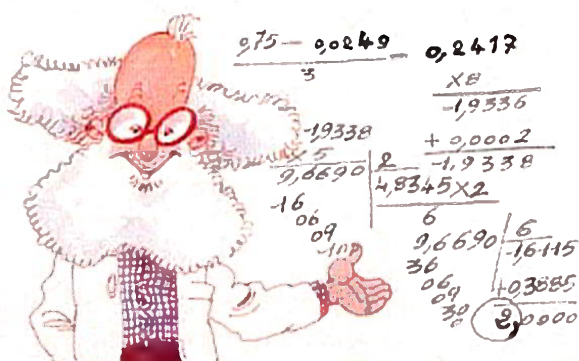 0,75 — 0,0249 — 0,2417
3
×8
-1,9336
+ 0,0002
-1,9338
-1,9338
× 5
9,6690 2
4,8345×2
-16
06
09
6
9,6690 6
-1,6115
36
06
09
30
0
+0,3885
2,0000